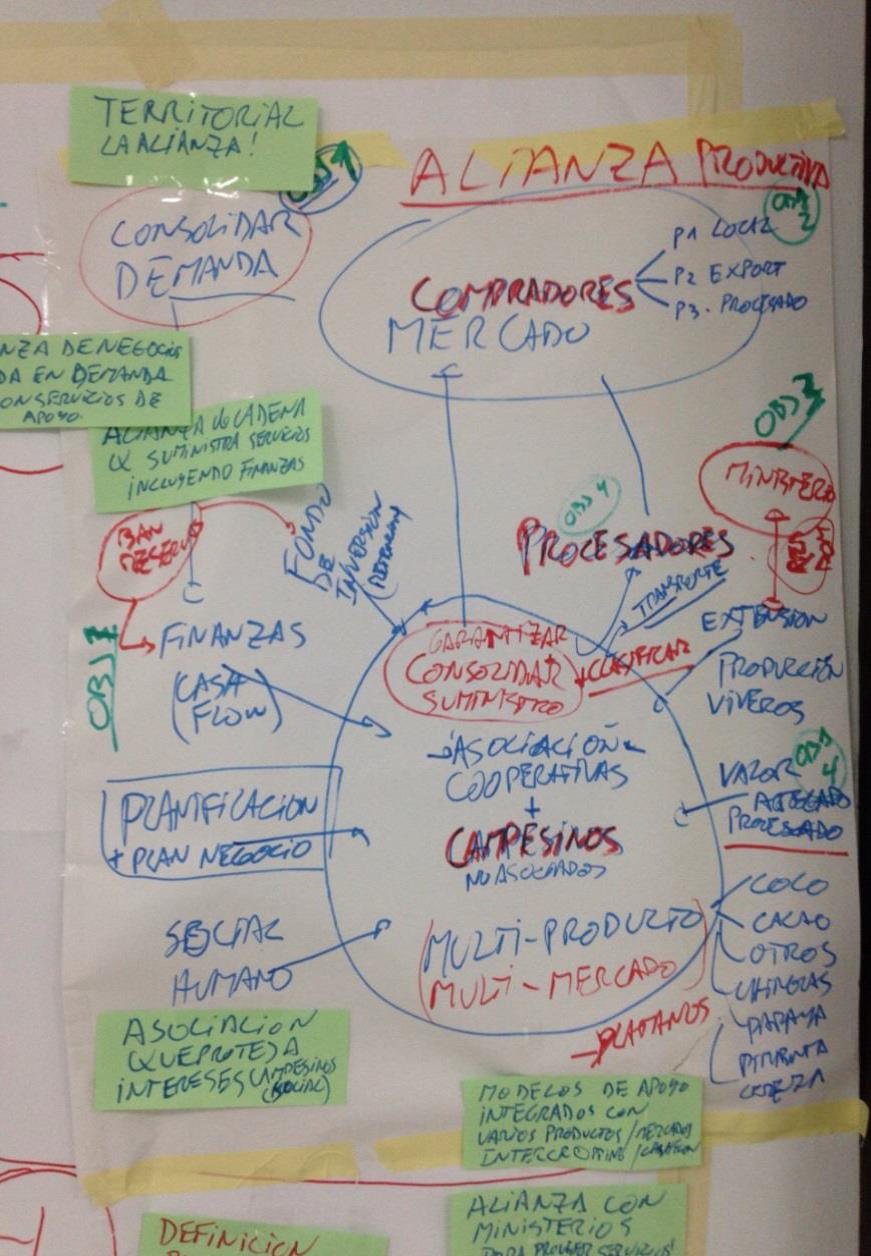 TERRITORIAL
LA ALIANZA!
OBJ 1
ALIANZA PRODUCTIVA
CONSOLIDAR
DEMANDA
OBJ 2
P1 LOCAL
P2 EXPORT
P3. PROCESADO
COMPRADORES
MERCADO
NZA DE NEGOCIOS
DA EN DEMANDA
ON SERVICIOS DE
APOYO.
ALIANZA CADENA
Q SUMINISTRA SERVICIOS
INCLUYENDO FINANZAS
OBJ
MINISTERIO
BAN
RESERVA
FONDO
DE
INVERSION
OBJ 4
PROCESADORES
TRANSPORTE
EXTENSION
PRODUCCIÓN
VIVEROS
OBJ
FINANZAS
(CASH
FLOW)
GARANTIZAR
CONSOLIDAR
SUMINISTRO
+CLASIFICAR
ASOCIACION
COOPERATIVAS
+
CAMPESINOS
NO ASOCIADOS
VALOR
OBJ 4
PROCESADO
PLANIFICACION
+ PLAN NEGOCIO
SOCIAL
HUMANO
(MULTI-PRODUCTO)
(MULTI-MERCADO)
COCO
CACAO
OTROS
CHINOLAS
PAPAYA
CEREZA
→PLATANOS
ASOCIACION
QUE PROTEJA
INTERESES CAMPESINOS
(SOCIAL)
MODELOS DE APOYO
INTEGRADOS CON
VARIOS PRODUCTOS/MERCADOS
INTERCROPPING/
ALIANZA CON
MINISTERIOS
PARA PROVEER SERVICIOS!
DEFINICION